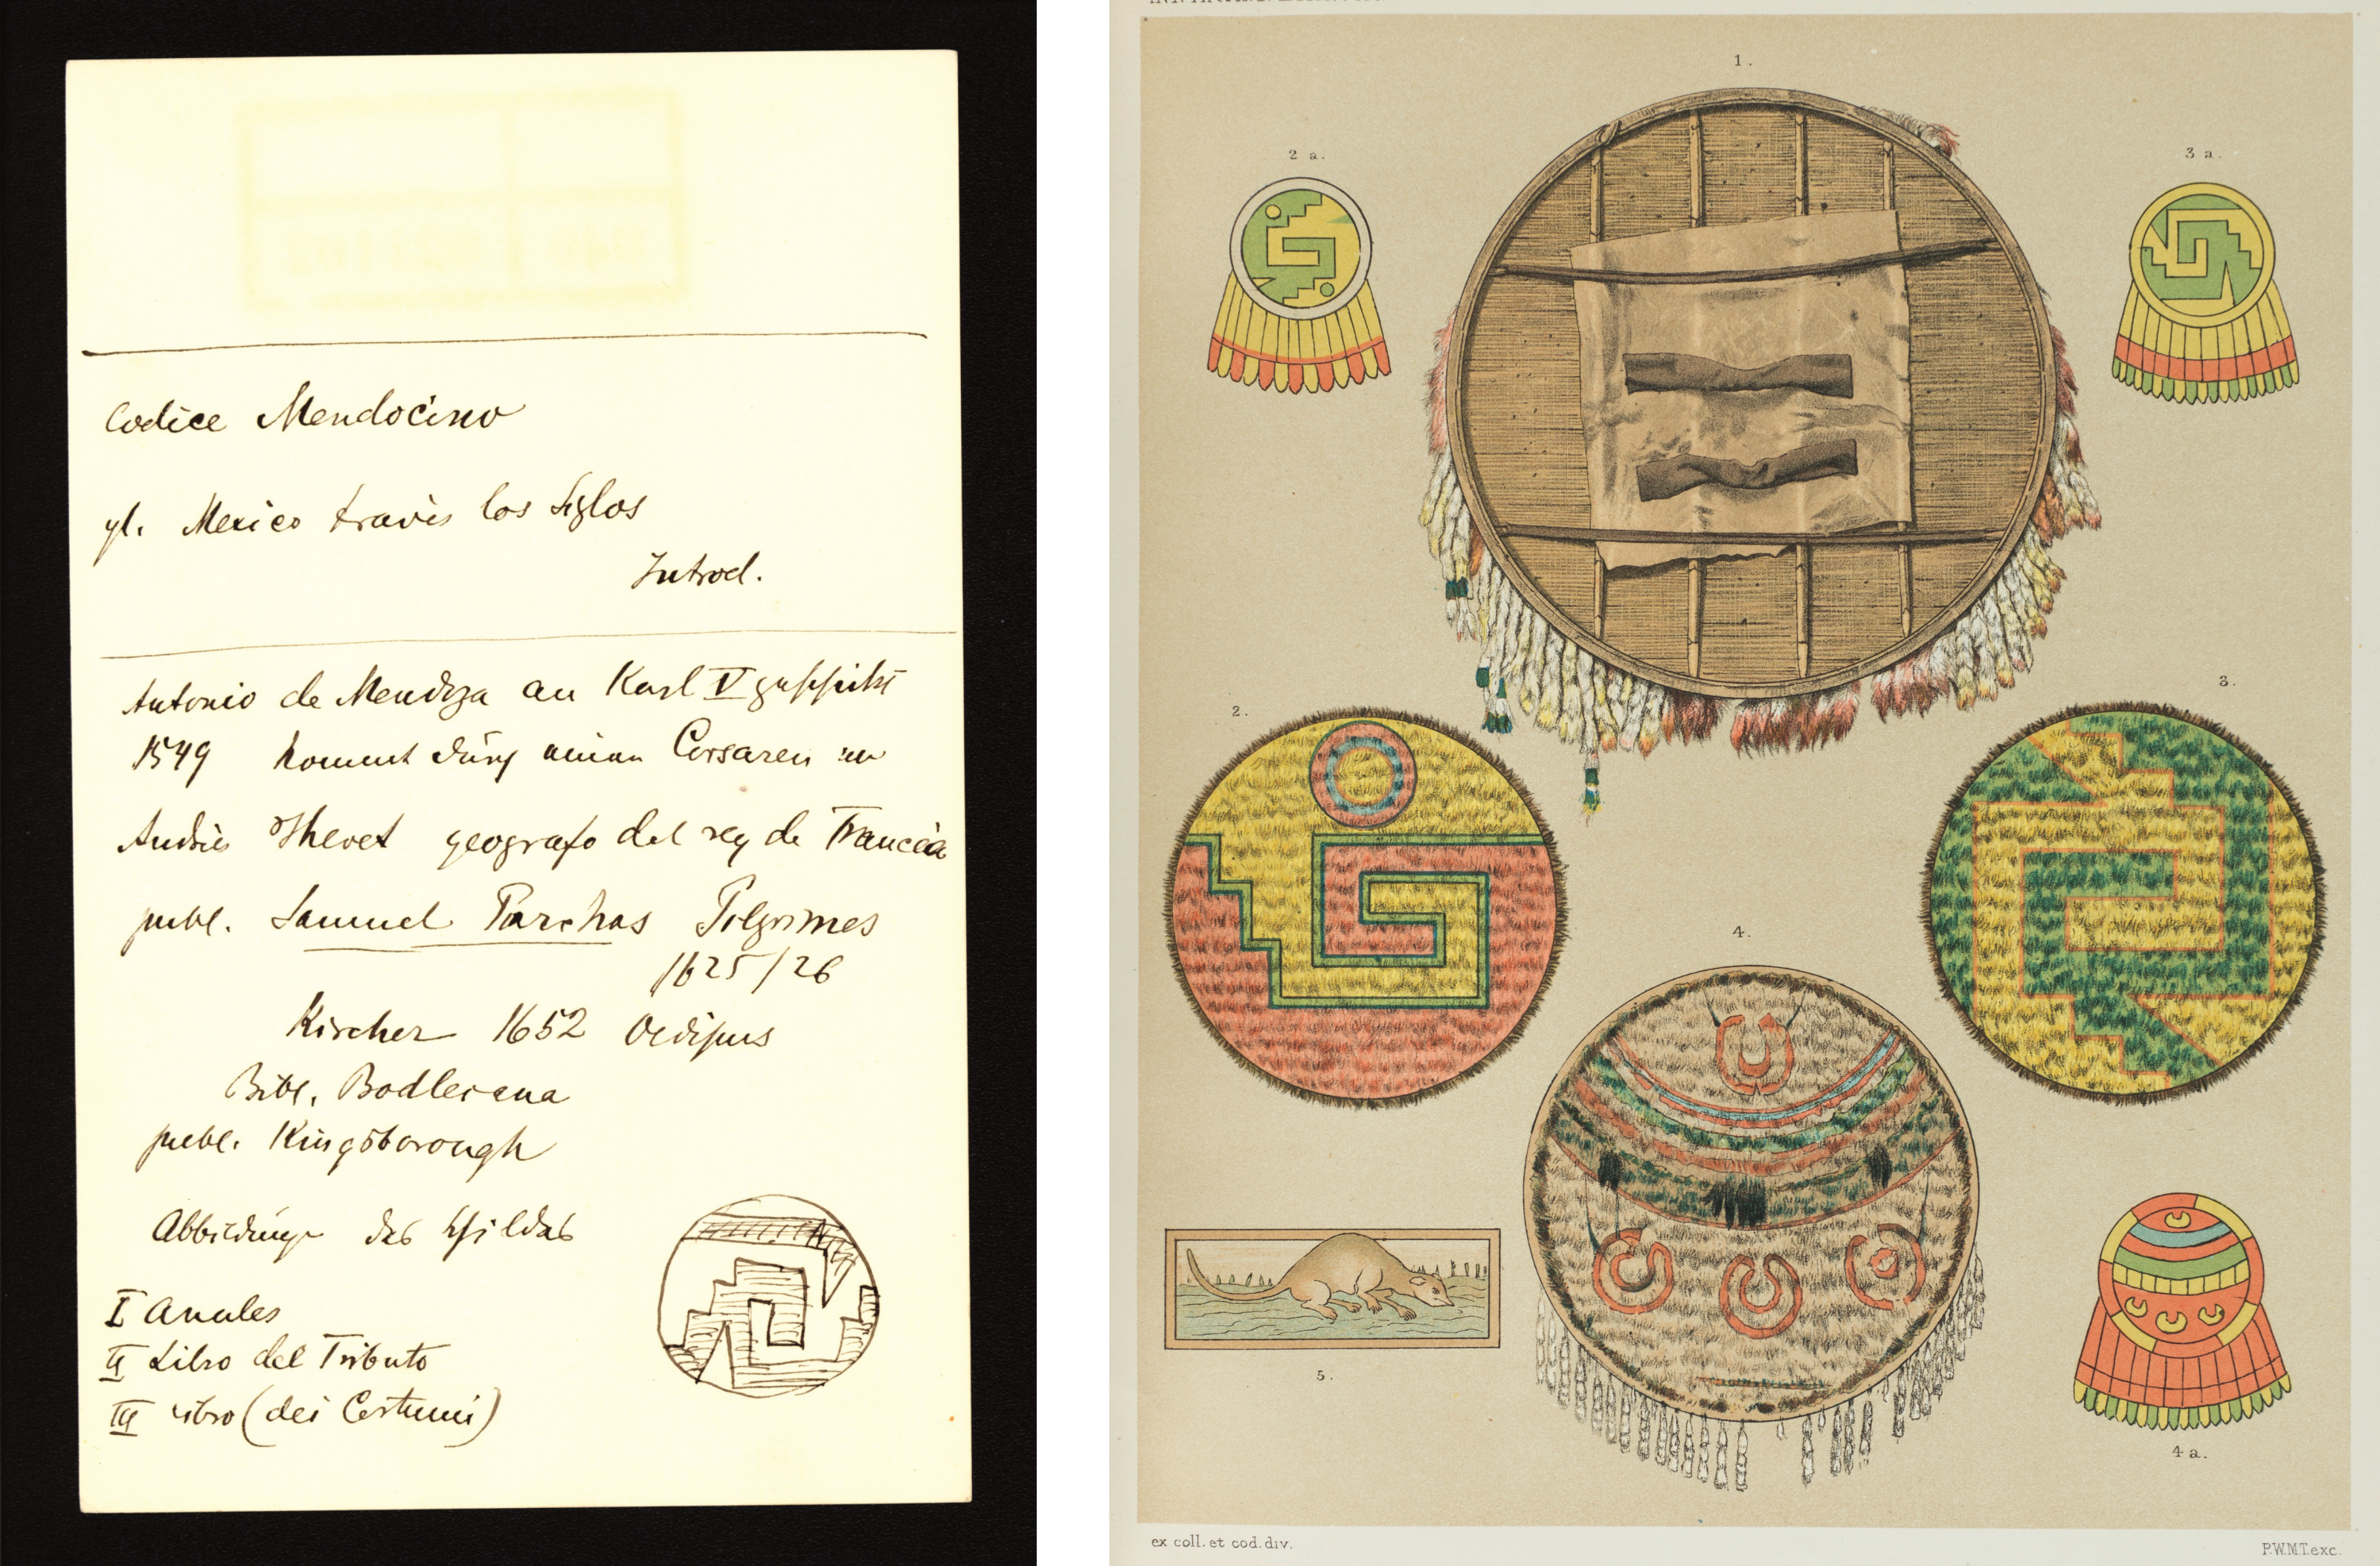 Codice Mendocino
gl. Mexico través los Siglos
Introd.
Antonio de Mendoza an Karl V geschickt
1549 kommt durch einen Corsaren an
Andrés Thevet geografo del rey de Francia
publ. Samuel Purchas Pilgrimes
1625/26
Kircher 1652 Oedipus
Bibl. Bodleiana
publ. Kingsborough
Abbildung des Schildes
I Anales
II Libro del Tributo
III Libro (dei Costumi)
1.
2 a.
3 a.
2.
3.
4.
5.
4 a.
ex coll. et cod. div.
P.W.M.T. exc.